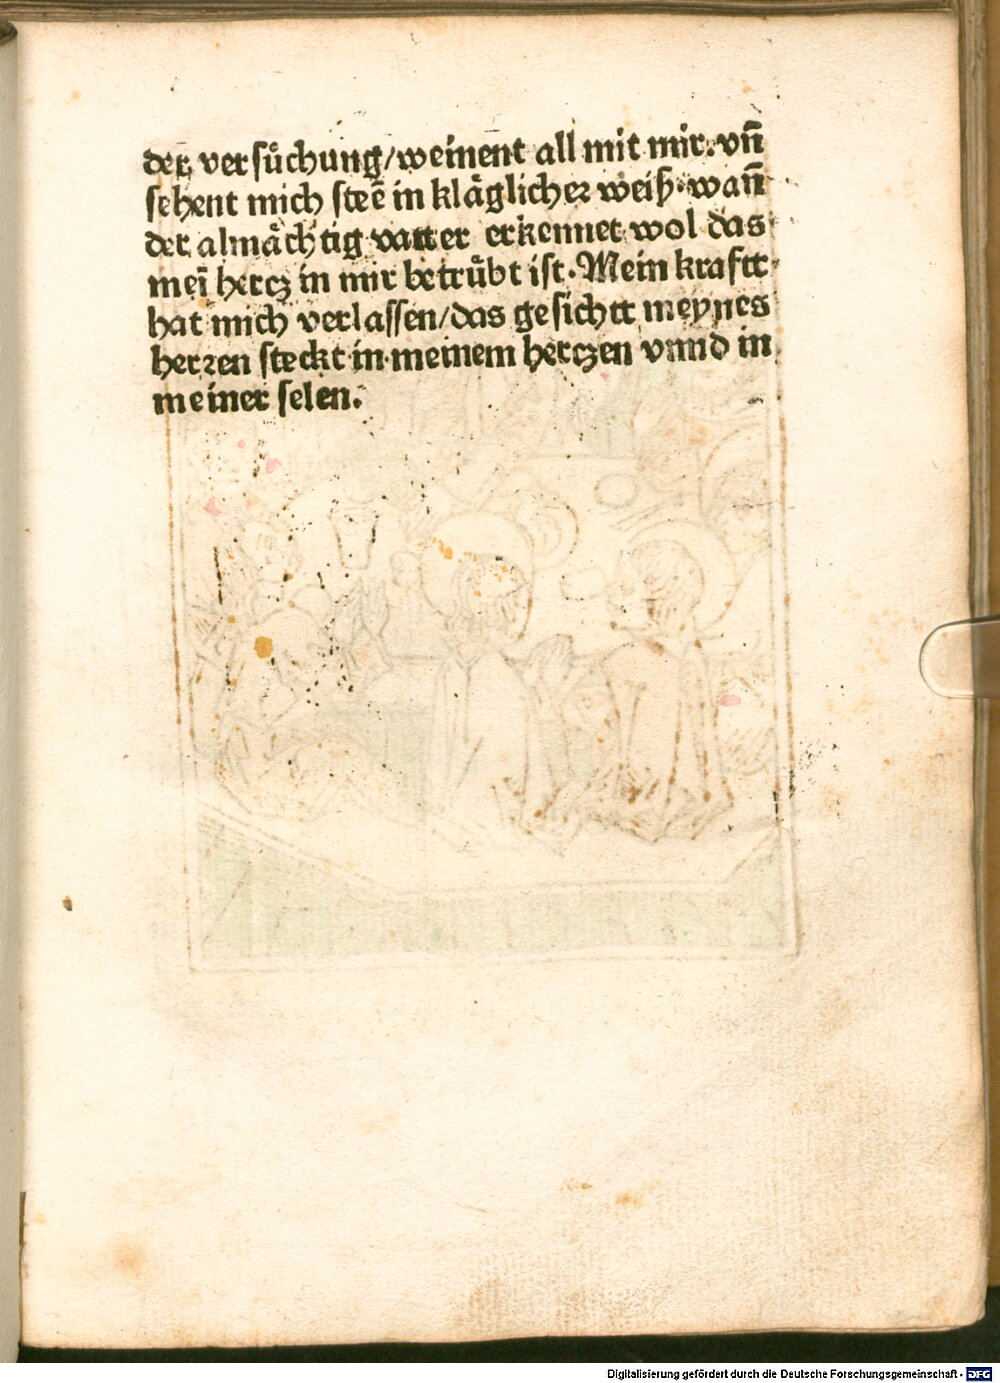 der versuͦchung/weinent all mit mir. vn̄
sehent mich steē in klaͤglicher weiß. wan̄
der almaͤchtig vatter erkennet wol das
meī hercz in mir betruͤbt ist. Mein krafft
hat mich verlassen/das gesichtt meynes
herren steckt in meinem herczen vnnd in
meiner selen.
Digitalisierung gefördert durch die Deutsche Forschungsgemeinschaft - DFG